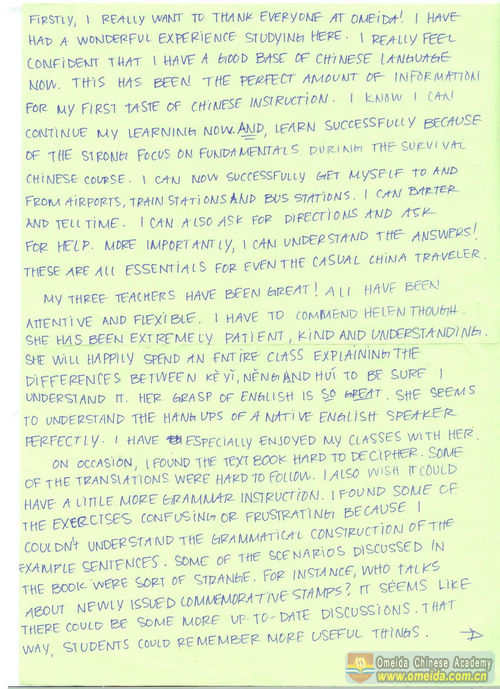 FIRSTLY, I REALLY WANT TO THANK EVERYONE AT OMEIDA! I HAVE
HAD A WONDERFUL EXPERIENCE STUDYING HERE. I REALLY FEEL
CONFIDENT THAT I HAVE A GOOD BASE OF CHINESE LANGUAGE
NOW. THIS HAS BEEN THE PERFECT AMOUNT OF INFORMATION
FOR MY FIRST TASTE OF CHINESE INSTRUCTION. I KNOW I CAN
CONTINUE MY LEARNING NOW AND, LEARN SUCCESSFULLY BECAUSE
OF THE STRONG FOCUS ON FUNDAMENTALS DURING THE SURVIVAL
CHINESE COURSE. I CAN NOW SUCCESSFULLY GET MYSELF TO AND
FROM AIRPORTS, TRAIN STATIONS AND BUS STATIONS. I CAN BARTER
AND TELL TIME. I CAN ALSO ASK FOR DIRECTIONS AND ASK
FOR HELP. MORE IMPORTANTLY, I CAN UNDERSTAND THE ANSWERS!
THESE ARE ALL ESSENTIALS FOR EVEN THE CASUAL CHINA TRAVELER.
MY THREE TEACHERS HAVE BEEN GREAT! ALL HAVE BEEN
ATTENTIVE AND FLEXIBLE. I HAVE TO COMMEND HELEN THOUGH.
SHE HAS BEEN EXTREMELY PATIENT, KIND AND UNDERSTANDING.
SHE WILL HAPPILY SPEND AN ENTIRE CLASS EXPLAINING THE
DIFFERENCES BETWEEN KĚYǏ, NĚNG AND HUÌ TO BE SURE I
UNDERSTAND IT. HER GRASP OF ENGLISH IS SO GREAT. SHE SEEMS
TO UNDERSTAND THE HANG UPS OF A NATIVE ENGLISH SPEAKER
PERFECTLY. I HAVE ESPECIALLY ENJOYED MY CLASSES WITH HER.
ON OCCASION, I FOUND THE TEXT BOOK HARD TO DECIPHER. SOME
OF THE TRANSLATIONS WERE HARD TO FOLLOW. I ALSO WISH IT COULD
HAVE A LITTLE MORE GRAMMAR INSTRUCTION. I FOUND SOME OF
THE EXERCISES CONFUSING OR FRUSTRATING BECAUSE I
COULDN'T UNDERSTAND THE GRAMMATICAL CONSTRUCTION OF THE
EXAMPLE SENTENCES. SOME OF THE SCENARIOS DISCUSSED IN
THE BOOK WERE SORT OF STRANGE. FOR INSTANCE, WHO TALKS
ABOUT NEWLY ISSUED COMMEMORATIVE STAMPS? IT SEEMS LIKE
THERE COULD BE SOME MORE UP-TO-DATE DISCUSSIONS. THAT
WAY, STUDENTS COULD REMEMBER MORE USEFUL THINGS.
Omeida Chinese Academy
www.omeida.com.cn